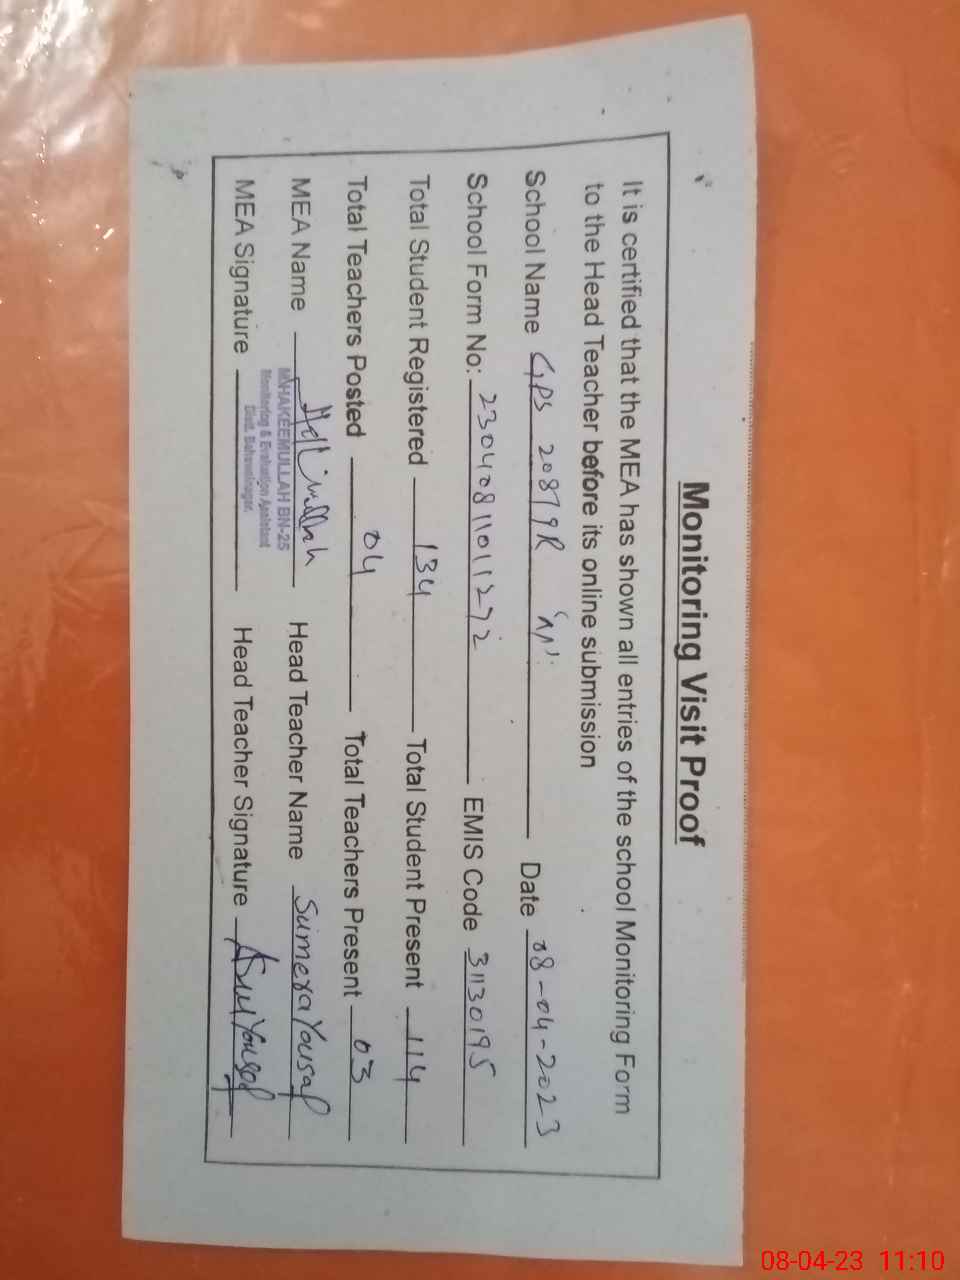 Monitoring Visit Proof
It is certified that the MEA has shown all entries of the school Monitoring Form
to the Head Teacher before its online submission
School Name GPS 208/9R Date 08-04-2023
School Form No: 2304081101272 EMIS Code 31130195
Total Student Registered 134 Total Student Present 114
Total Teachers Posted 04 Total Teachers Present 03
MEA Name Head Teacher Name Sumera Yousaf
MEA Signature Head Teacher Signature
M.HAKEEMULLAH BN-25
Monitoring & Evaluation Assistant
Distt. Bahawalnagar.
08-04-23 11:10